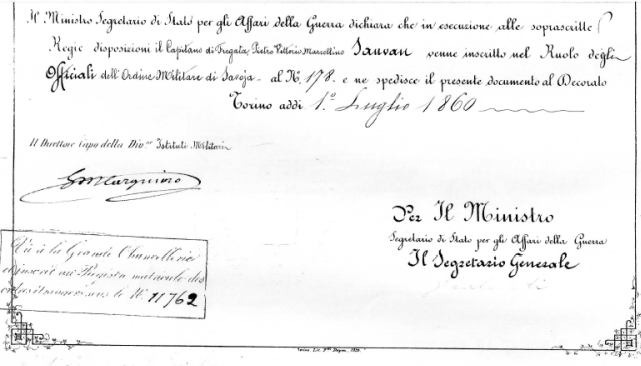 Il Ministro Segretario di Stato per gli Affari della Guerra dichiara che in esecuzione alle soprascritte
Regie disposizioni il Capitano di Fregata, Pietro Vittorio Marcellino Sauvan venne inscritto nel Ruolo degli
Officiali dell'Ordine Militare di Savoja al N. 178. e ne spedisce il presente documento al Decorato
Torino addì 1.º Luglio 1860
Il Direttore Capo della Div.ne Istituti Militari
Per Il Ministro
Segretario di Stato per gli Affari della Guerra
Il Segretario Generale
Vu à la Grande Chancellerie
et inscrit au Registre matricule des
ordres étrangers sous le N. 11762
Torino, Lit.